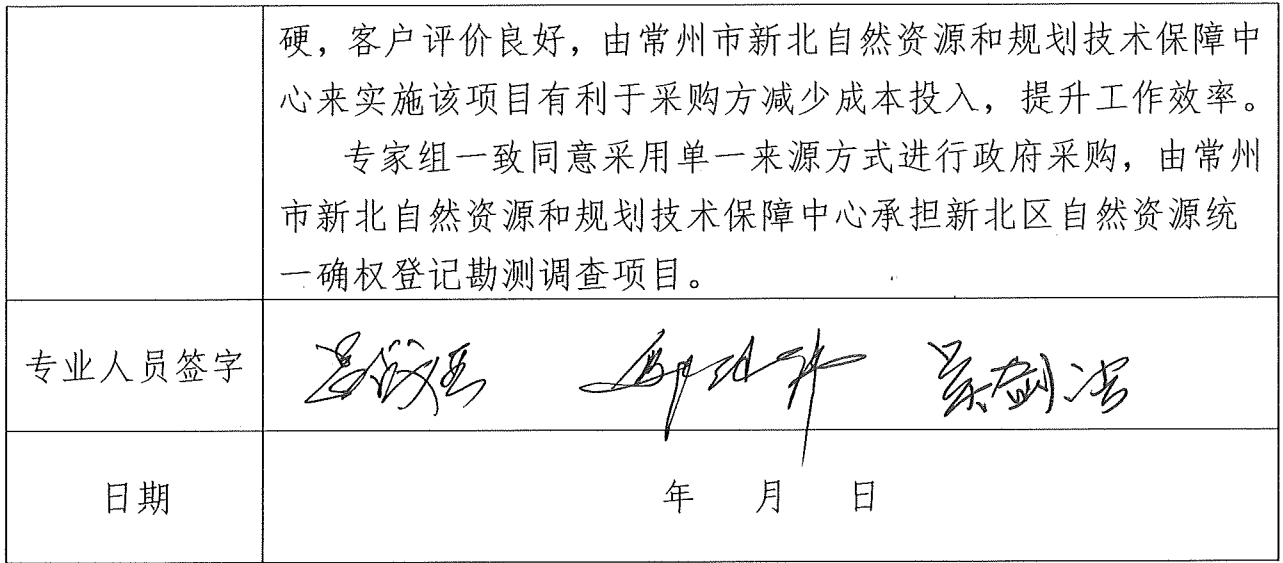 硬，客户评价良好，由常州市新北自然资源和规划技术保障中
心来实施该项目有利于采购方减少成本投入，提升工作效率。
专家组一致同意采用单一来源方式进行政府采购，由常州
市新北自然资源和规划技术保障中心承担新北区自然资源统
一确权登记勘测调查项目。
专业人员签字
日期 年 月 日